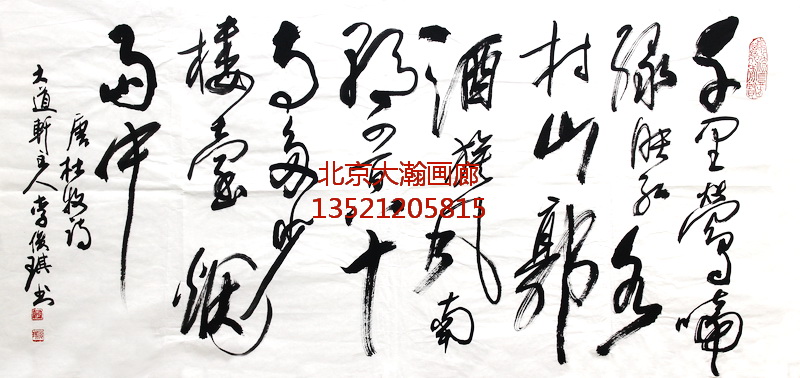 千里鶯啼
绿映红水
村山郭
酒旗风南
朝四百八十
寺多少
楼臺烟
雨中
唐杜牧诗
大道軒主人李俊琪书
北京大瀚画廊
13521205815